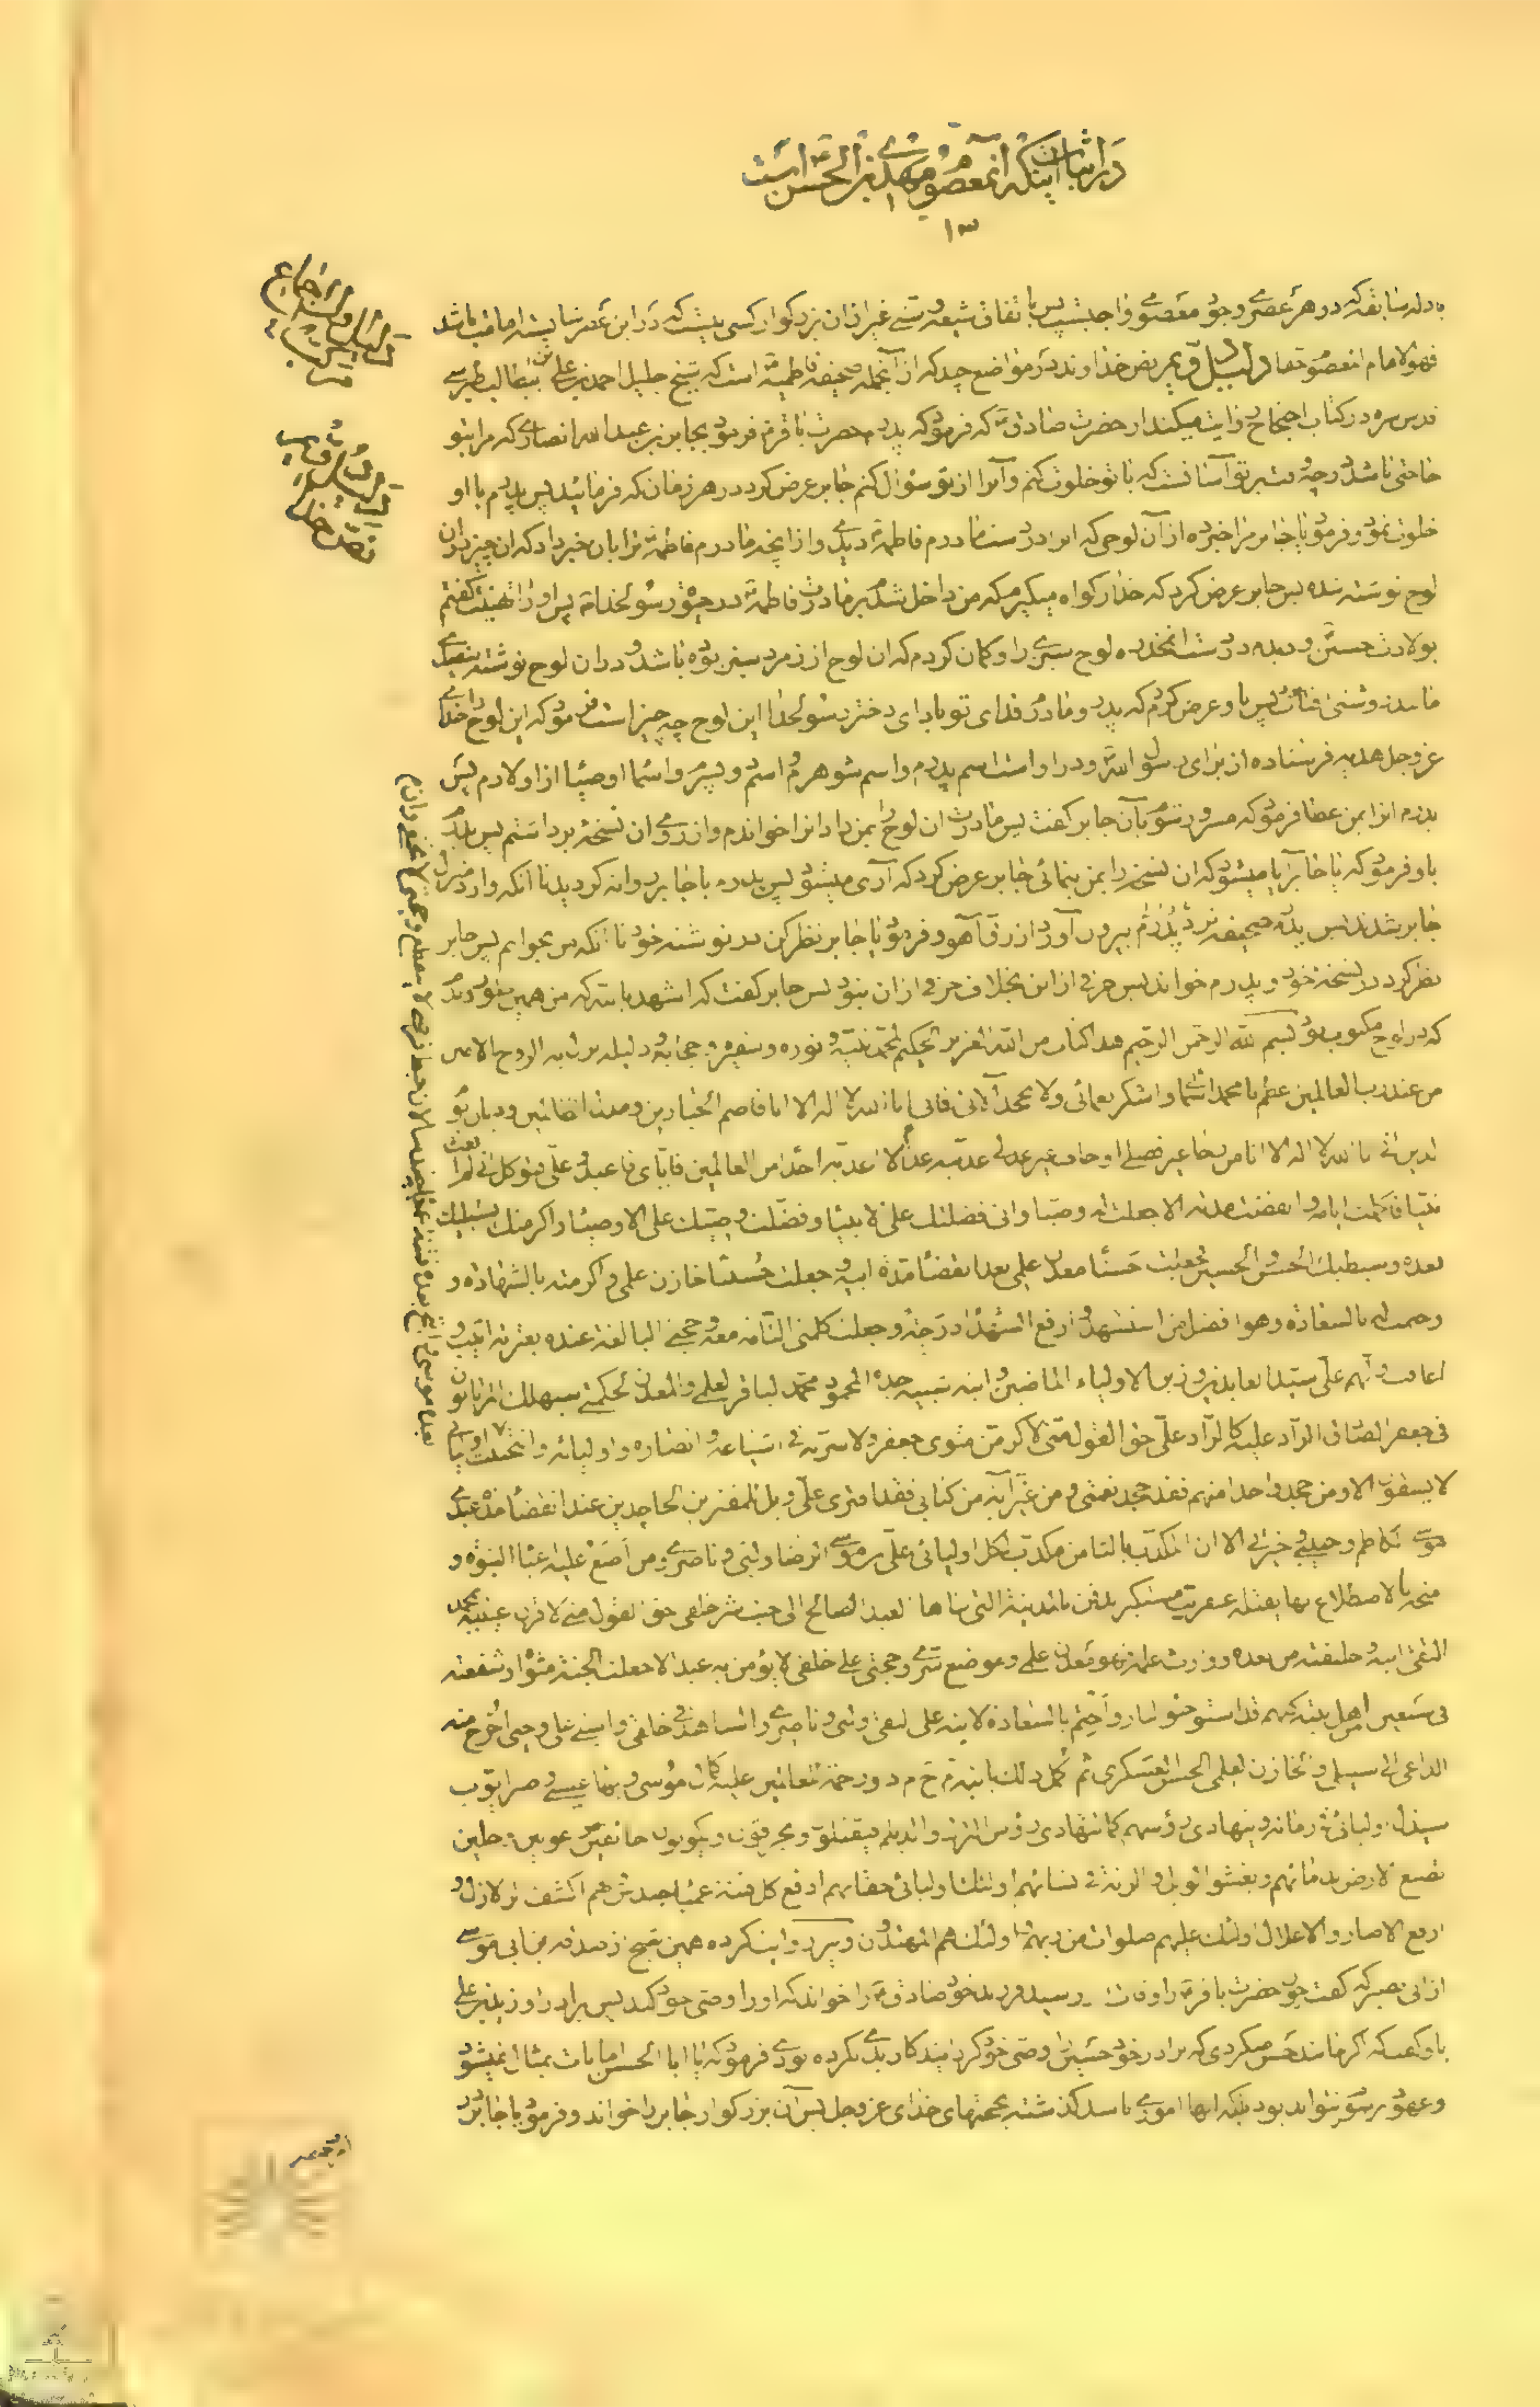 در اثبات اینکه آنمعصوم مهدی بن الحسن است
۱۳
دلیل اول
اجماع
دلیل دوم
بادله سابقه که در هر عصری وجود معصومی واجبست پس باتفاق شیعه و سنی غیر از آن بزرگوار کسی نیست که در این عصر شایسته امامت باشد
فهو الامام المعصوم حقا دلیل دویم نص خداوند در مواضع چند که از آنجمله صحیفه فاطمیه است که شیخ جلیل احمد بن علی بن ابیطالب طبرسی
قدس سره در کتاب احتجاج روایت میکند از حضرت صادق که فرمود که پدرم حضرت باقر فرمود بجابر بن عبد الله انصاری که مرا بتو
حاجتی باشد و چه وقت بر تو آسانست که با تو خلوت کنم و آنرا از تو سؤال کنم جابر عرض کرد در هر زمان که فرمائید پس پدرم با او
خلوت نمود و فرمود یا جابر مرا خبر ده از آن لوحی که انرا در دست مادرم فاطمه دیدی و از آنچه مادرم فاطمه ترا بان خبر داد که ان چیز در ان
لوح نوشته شده پس جابر عرض کرد که خدا را گواه میگیرم که من داخل شدم بر مادرت فاطمه در حیوة رسولخدا پس او را تهنیت گفتم
بولادت حسین و دیدم در دست انمخدره لوح سبزی را و گمان کردم که ان لوح از زمرد سبز بوده باشد و در ان لوح نوشته سفیدی
مانند روشنی افتاب پس باو عرض کردم که پدر و مادرم فدای تو باد ای دختر رسولخدا این لوح چه چیز است فرمود که این لوح را خدای
عز و جل هدیه فرستاده از برای رسول الله و در او است اسم پدرم و اسم شوهرم و اسم دو پسرم و اسماء اوصیا از اولادم پس
پدرم انرا بمن عطا فرمود که مسرور شوم بآن جابر گفت پس مادرت ان لوح را بمن داد انرا خواندم و از روی ان نسخه برداشتم پس پدرم
باو فرمود که یا جابر آیا میشود که ان نسخه را بمن بنمائی جابر عرض کرد که آری میشود پس پدرم با جابر روانه گردید تا آنکه وارد منزل
جابر شدند پس پدرم صحیفه نزد پدرم بیرون آورد از رق آهو و فرمود یا جابر نظر کن در نوشته خود تا آنکه من بخوانم پس جابر
نظر کرد در نسخه خود و پدرم خواند پس حرفی از این بخلاف حرفی از ان نبود پس جابر گفت که اشهد بالله که من همین طور دیدم
که در لوح مکتوب بود بسم الله الرحمن الرحیم هذا کتاب من الله العزیز الحکیم لمحمد نبیه و نوره و سفیره و حجابه و دلیله نزل به الروح الامین
من عند رب العالمین عظم یا محمد اسمائی و اشکر نعمائی و لا تجحد آلائی فانی انا الله لا اله الا انا قاصم الجبارین و مذل الظالمین و دیان یوم
الدین انی انا الله لا اله الا انا من رجا غیر فضلی او خاف غیر عدلی عذبته عذابا لا اعذبه احدا من العالمین فایای فاعبد و علی فتوکل انی لم ابعث
نبیا فاکملت ایامه و انقضت مدته الا جعلت له وصیا و انی فضلتک علی الانبیا و فضلت وصیک علی الاوصیا و اکرمتک بشبلیک
بعده و سبطیک الحسن و الحسین فجعلت حسنا معدن علمی بعد انقضاء مدة ابیه و جعلت حسینا خازن علمی و اکرمته بالشهادة و
و ختمت له بالسعادة و هو افضل من استشهد و ارفع الشهداء درجة و جعلت کلمتی التامة معه و حجتی البالغة عنده بعترته اثیب و
اعاقب اولهم علی سید العابدین و زین الاولیاء الماضین و ابنه شبیه جده المحمود محمد الباقر لعلمی و المعدن لحکمتی سیهلک المرتابون
فی جعفر الصادق الراد علیه کالراد علی حق القول منی لاکرمن مثوی جعفر و لاسرنه فی اشیاعه و انصاره و اولیائه و انتجبت
الا و من جحد واحدا منهم فقد جحد نعمتی و من غیر آیة من کتابی فقد افتری علی و ویل للمفترین الجاحدین عند انقضاء مدة عبدی
موسی الکاظم و حبیبی و خیرتی الا ان المکذب بالثامن مکذب بکل اولیائی علی بن موسی الرضا ولیی و ناصری و من اضع علیه اعباء النبوة و
منحه بالاضطلاع بها یقتله عفریت مستکبر یدفن بالمدینة التی بناها العبد الصالح الی جنب شر خلقی حق القول منی لاقرن عینیه بمحمد
التقی ابنه و خلیفته من بعده و وارث علمه فهو معدن علمی و موضع سری و حجتی علی خلقی لا یؤمن به عبد الا جعلت الجنة مثواه و شفعته
فی سبعین من اهل بیته کلهم قد استوجبوا النار و اختم بالسعادة لابنه علی النقی ولیی و ناصری و الشاهد فی خلقی و امینی علی وحیی اخرج منه
الداعی الی سبیلی و الخازن لعلمی الحسن العسکری ثم اکمل ذلک بابنه م ح م د رحمة للعالمین علیه کمال موسی و بهاء عیسی و صبر ایوب
سیذل اولیائی فی زمانه و یتهادی رؤسهم کما یتهادی رؤس الترک و الدیلم فیقتلون و یحرقون و یکونون خائفین مرعوبین وجلین
تصبغ الارض بدمائهم و یفشو الویل و الرنة فی نسائهم اولئک اولیائی حقا بهم ادفع کل فتنة عمیاء حندس و بهم اکشف الزلازل و
ارفع الاصار و الاغلال اولئک علیهم صلوات من ربهم و اولئک هم المهتدون و نیز روایت کرده همین شیخ از صدقه بن ابی موسی
از ابی بصیر که گفت چون حضرت باقر را وفات رسید فرزند خود صادق را خواند که او را وصی خود کند پس برادر او زید بن علی
باو گفت که اگر مانند حسن میکردی که برادر خود حسین را وصی خود گردانید کار بدی نکرده بودی فرمود که یا ابا الحسن امانات بمثال نمیشود
و عهود برسوم نتواند بود بلکه اینها اموری باشد گذشته بحجتهای خدای عز و جل پس آن بزرگوار جابر را خواند و فرمود یا جابر